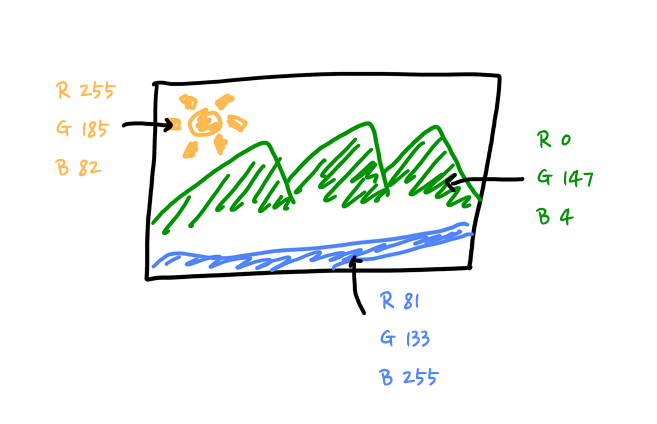 R 255
G 185
B 82
R 0
G 147
B 4
R 81
G 133
B 255